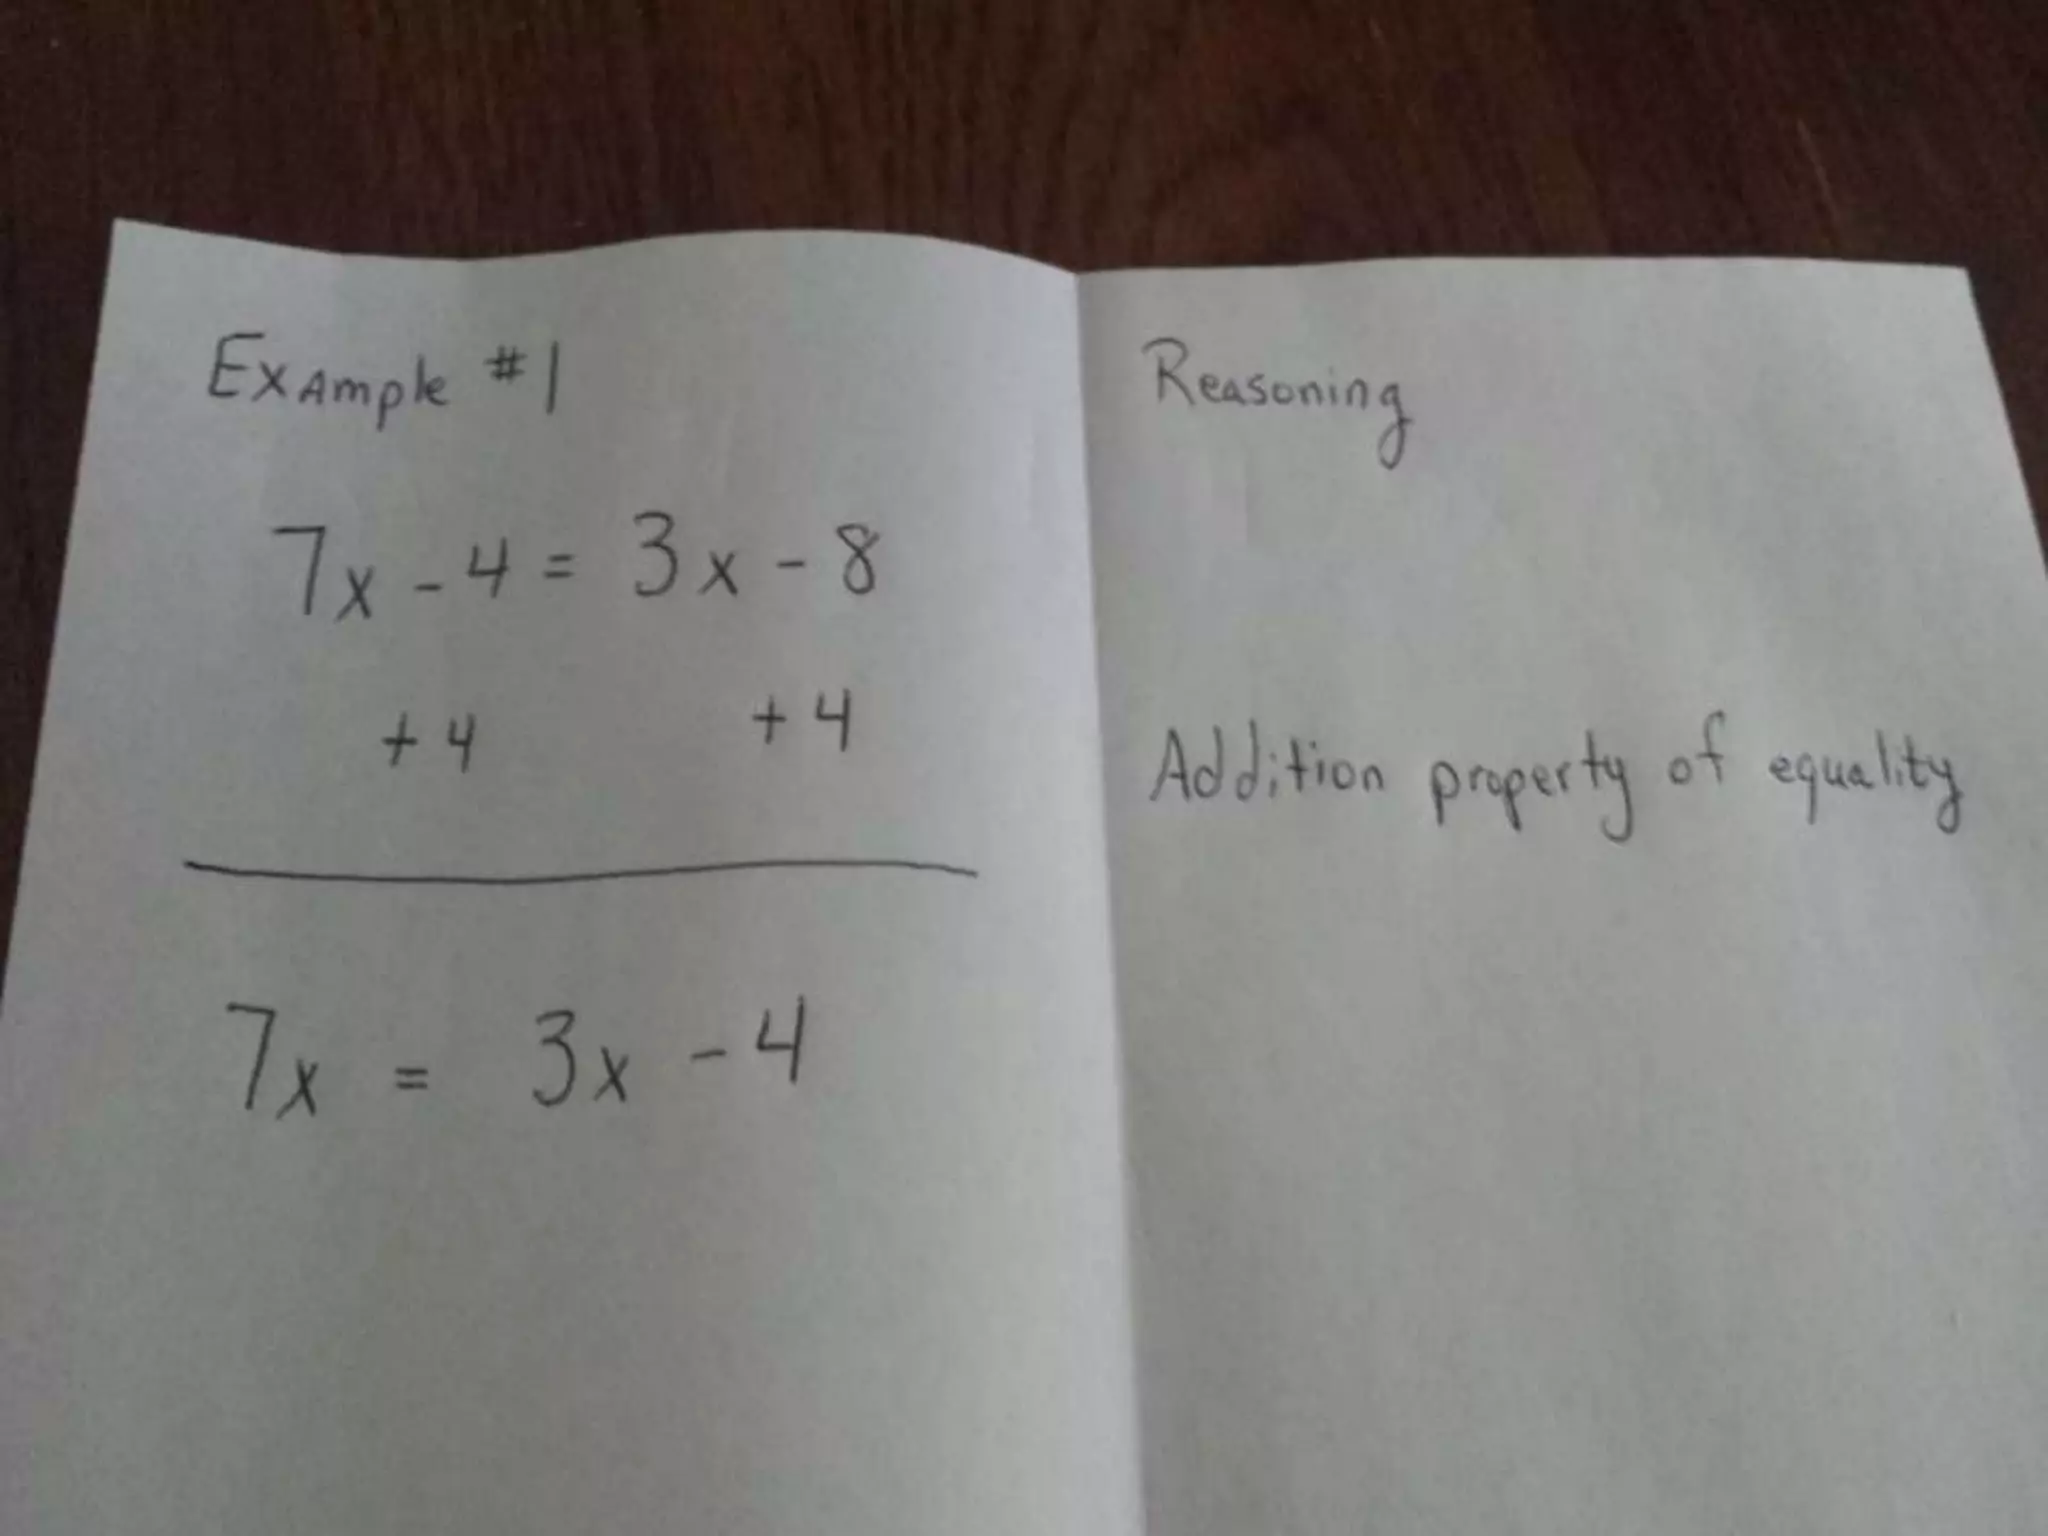 Example #1
7x - 4 = 3x - 8
+ 4 + 4
7x = 3x - 4
Reasoning
Addition property of equality